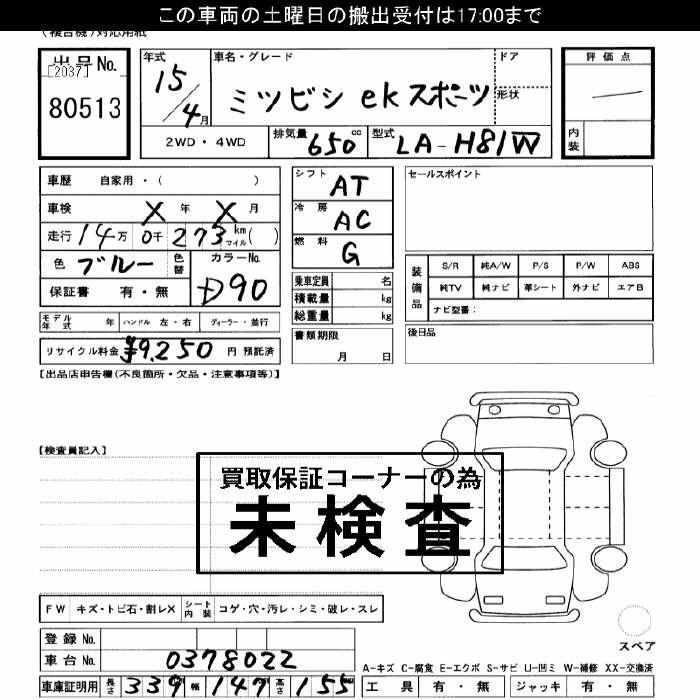 この車両の土曜日の搬出受付は17:00まで
(複合機)対応用紙
出品No.
[2037]
80513
年式 15/4月
車名・グレード ミツビシ ekスポーツ
ドア
形状
評価点
内装
2WD・4WD
排気量 650cc
型式 LA-H81W
車歴 自家用・( )
車検 X年 X月
走行 14万0千273 km マイル( )
色 ブルー 色替
カラーNo. D90
保証書 有・無
シフト AT
冷房 AC
燃料 G
乗車定員 名
積載量 kg
総重量 kg
セールスポイント
装備品
S/R 純A/W P/S P/W ABS
純TV 純ナビ 革シート 外ナビ エアB
ナビ型番:
モデル年式 年 ハンドル 左・右 ディーラー・並行
リサイクル料金 ¥9,250 円 預託済
書類期限
月 日
後日品
【出品店申告欄(不良箇所・欠品・注意事項等)】
【検査員記入】
買取保証コーナーの為
未検査
FW キズ・トビ石・割レX シート内装 コゲ・穴・汚レ・シミ・破レ・スレ
登録No.
車台No. 0378022
車庫証明用 長さ 339 幅 147 高さ 155
スペア
A-キズ C-腐食 E-エクボ S-サビ U-凹ミ W-補修 XX-交換済
工具 有・無 ジャッキ 有・無